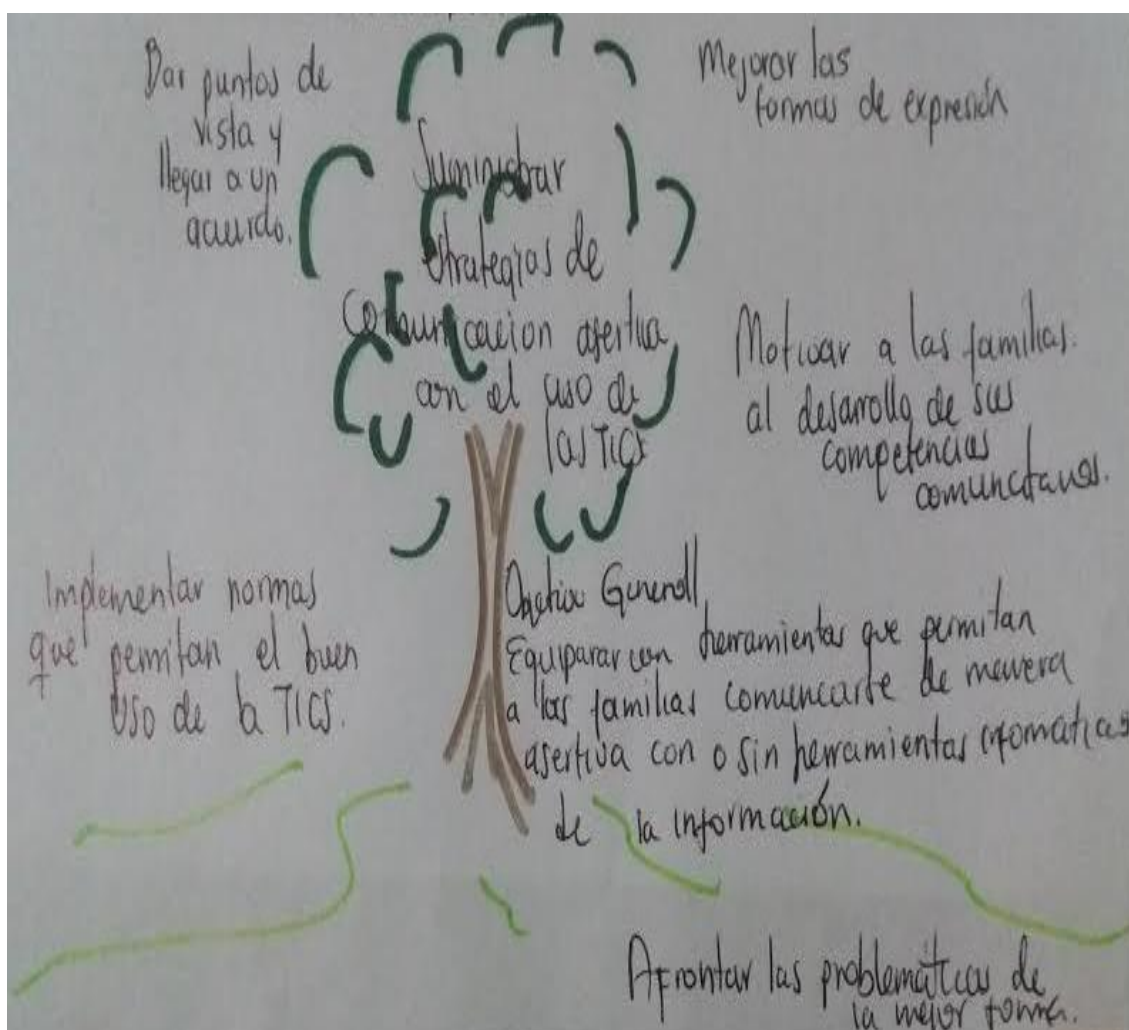 Dar puntos de
vista y
llegar a un
acuerdo.
Suministrar
estrategias de
comunicacion asertiva
con el uso de
las TICS
Mejorar las
formas de expresión
Motivar a las familias.
al desarrollo de sus
competencias
Implementar normas
que permitan el buen
uso de la TICS.
Generall
Equiparar con herramientas que permitan
a las familias comuncarse de manera
asertiva con o sin herramientas
de la información.
Afrontar las problemáticas de
la mejor forma.